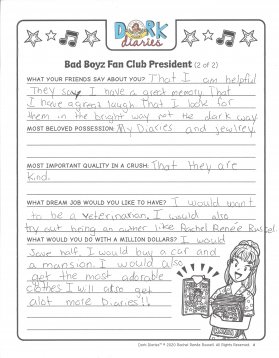 DORK
diaries
Bad Boyz Fan Club President (2 of 2)
WHAT YOUR FRIENDS SAY ABOUT YOU? That I am helpful
They say I have a great memory. That
I have a great laugh That I look for
them in the bright way not the dark way
MOST BELOVED POSSESSION: My Diaries and jewlrey.
MOST IMPORTANT QUALITY IN A CRUSH: That they are
kind.
WHAT DREAM JOB WOULD YOU LIKE TO HAVE? I would want
to be a veterinarian. I would also
try out being an auther like Rachel Renée Russel.
WHAT WOULD YOU DO WITH A MILLION DOLLARS? I would
Save half, I would buy a car and
a mansion. I would also
get the most adorable
clothes I will also get
alot more Diaries!!
Dork Diaries™ © 2020 Rachel Renée Russell. All Rights Reserved.